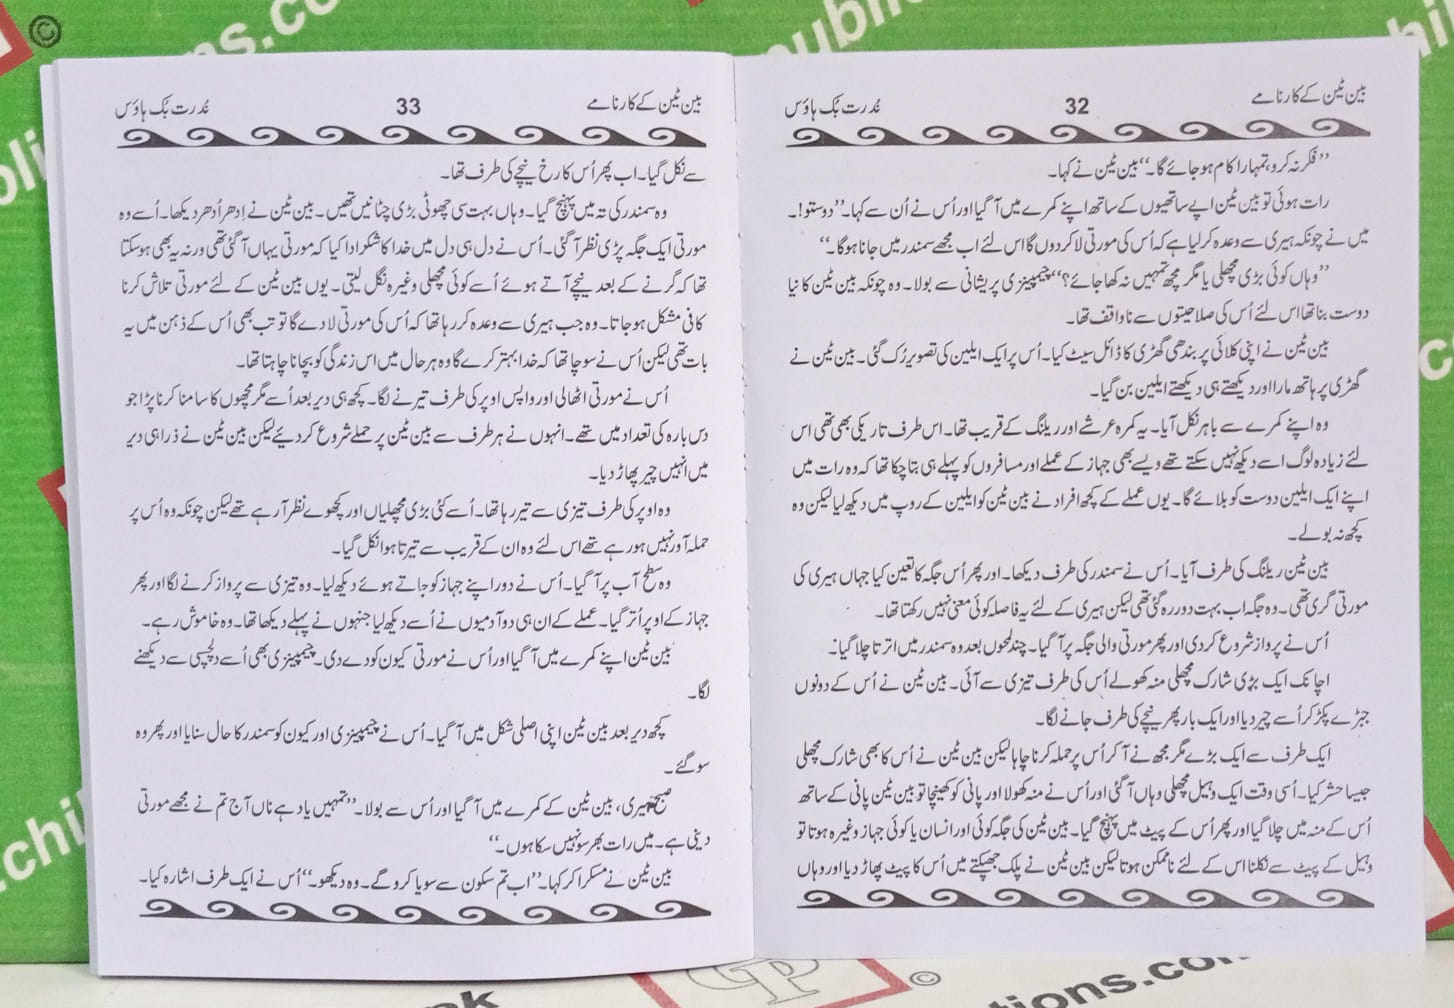 بین ٹین کے کارنامے 32 نُدرت بُک ہاؤس
’’فکر نہ کرو، تمہارا کام ہو جائے گا۔‘‘ بین ٹین نے کہا۔
رات ہوئی تو بین ٹین اپے ساتھیوں کے ساتھ اپنے کمرے میں آ گیا اور اُس نے اُن سے کہا۔ ’’دوستو!۔
میں نے چونکہ ہیری سے وعدہ کر لیا ہے کہ اُس کی مورتی لا کر دوں گا اس لئے اب مجھے سمندر میں جانا ہوگا۔‘‘
’’وہاں کوئی بڑی مچھلی یا مگر مچھ تمہیں نہ کھا جائے؟‘‘ چیمپینزی پریشانی سے بولا۔ وہ چونکہ بین ٹین کا نیا
دوست بنا تھا اس لئے اُس کی صلاحیتوں سے ناواقف تھا۔
بین ٹین نے اپنی کلائی پر بندھی گھڑی کا ڈائل سیٹ کیا۔ اُس پر ایک ایلین کی تصویر رُک گئی۔ بین ٹین نے
گھڑی پر ہاتھ مارا اور دیکھتے ہی دیکھتے ایلین بن گیا۔
وہ اپنے کمرے سے باہر نکل آیا۔ یہ کمرہ عرشے اور ریلنگ کے قریب تھا۔ اس طرف تاریکی بھی تھی اس
لئے زیادہ لوگ اسے دیکھ نہیں سکتے تھے ویسے بھی جہاز کے عملے اور مسافروں کو پہلے ہی بتا چکا تھا کہ وہ رات میں
اپنے ایک ایلین دوست کو بلائے گا۔ یوں عملے کے کچھ افراد نے بین ٹین کو ایلین کے روپ میں دیکھ لیا لیکن وہ
کچھ نہ بولے۔
بین ٹین ریلنگ کی طرف آیا۔ اُس نے سمندر کی طرف دیکھا۔ اور پھر اُس جگہ کا تعین کیا جہاں ہیری کی
مورتی گری تھی۔ وہ جگہ اب بہت دور رہ گئی تھی لیکن ہیری کے لئے یہ فاصلہ کوئی معنی نہیں رکھتا تھا۔
اُس نے پرواز شروع کر دی اور پھر مورتی والی جگہ پر آ گیا۔ چند لمحوں بعد وہ سمندر میں اترتا چلا گیا۔
اچانک ایک بڑی شارک مچھلی منہ کھولے اُس کی طرف تیزی سے آئی۔ بین ٹین نے اُس کے دونوں
جبڑے پکڑ کر اُسے چیر دیا اور ایک بار پھر نیچے کی طرف جانے لگا۔
ایک طرف سے ایک بڑے مگر مچھ نے آ کر اُس پر حملہ کرنا چاہا لیکن بین ٹین نے اُس کا بھی شارک مچھلی
جیسا حشر کیا۔ اُسی وقت ایک وہیل مچھلی وہاں آ گئی اور اُس نے منہ کھولا اور پانی کو کھینچا تو بین ٹین پانی کے ساتھ
اُس کے منہ میں چلا گیا اور پھر اُس کے پیٹ میں پہنچ گیا۔ بین ٹین کی جگہ کوئی اور انسان یا کوئی جہاز وغیرہ ہوتا تو
وہیل کے پیٹ سے نکلنا اس کے لئے ناممکن ہوتا لیکن بین ٹین نے پلک جھپکتے میں اُس کا پیٹ پھاڑ دیا اور وہاں
بین ٹین کے کارنامے 33 نُدرت بُک ہاؤس
سے نکل گیا۔ اب پھر اُس کا رخ نیچے کی طرف تھا۔
وہ سمندر کی تہ میں پہنچ گیا۔ وہاں بہت سی چھوٹی بڑی چٹانیں تھیں۔ بین ٹین نے اِدھر اُدھر دیکھا۔ اُسے وہ
مورتی ایک جگہ پڑی نظر آ گئی۔ اُس نے دل ہی دل میں خدا کا شکر ادا کیا کہ مورتی یہاں آ گئی تھی ورنہ یہ بھی ہو سکتا
تھا کہ گرنے کے بعد نیچے آتے ہوئے اُسے کوئی مچھلی وغیرہ نگل لیتی۔ یوں بین ٹین کے لئے مورتی تلاش کرنا
کافی مشکل ہو جاتا۔ وہ جب ہیری سے وعدہ کر رہا تھا کہ اُس کی مورتی لا دے گا تو تب بھی اُس کے ذہن میں یہ
بات تھی لیکن اُس نے سوچا تھا کہ خدا بہتر کرے گا وہ ہر حال میں اس زندگی کو بچانا چاہتا تھا۔
اُس نے مورتی اٹھا لی اور واپس اوپر کی طرف تیرنے لگا۔ کچھ ہی دیر بعد اُسے مگر مچھوں کا سامنا کرنا پڑا جو
دس بارہ کی تعداد میں تھے۔ انہوں نے ہر طرف سے بین ٹین پر حملے شروع کر دیئے لیکن بین ٹین نے ذرا ہی دیر
میں انہیں چیر پھاڑ دیا۔
وہ اوپر کی طرف تیزی سے تیر رہا تھا۔ اُسے کئی بڑی مچھلیاں اور کچھوے نظر آ رہے تھے لیکن چونکہ وہ اُس پر
حملہ آور نہیں ہو رہے تھے اس لئے وہ ان کے قریب سے تیرتا ہوا نکل گیا۔
وہ سطح آب پر آ گیا۔ اُس نے دور اپنے جہاز کو جاتے ہوئے دیکھ لیا۔ وہ تیزی سے پرواز کرنے لگا اور پھر
جہاز کے اوپر اُتر گیا۔ عملے کے ان ہی دو آدمیوں نے اُسے دیکھ لیا جنہوں نے پہلے دیکھا تھا۔ وہ خاموش رہے۔
بین ٹین اپنے کمرے میں آ گیا اور اُس نے مورتی کیون کو دے دی۔ چیمپینزی بھی اُسے دلچسپی سے دیکھنے
لگا۔
کچھ دیر بعد بین ٹین اپنی اصلی شکل میں آ گیا۔ اُس نے چیمپینزی اور کیون کو سمندر کا حال سنایا اور پھر وہ
سو گئے۔
صبح ہیری، بین ٹین کے کمرے میں آ گیا اور اُس سے بولا۔ ’’تمہیں یاد ہے ناں آج تم نے مجھے مورتی
دینی ہے۔ میں رات بھر سو نہیں سکا ہوں۔‘‘
بین ٹین نے مسکرا کر کہا۔ ’’اب تم سکون سے سویا کرو گے۔ وہ دیکھو۔‘‘ اُس نے ایک طرف اشارہ کیا۔